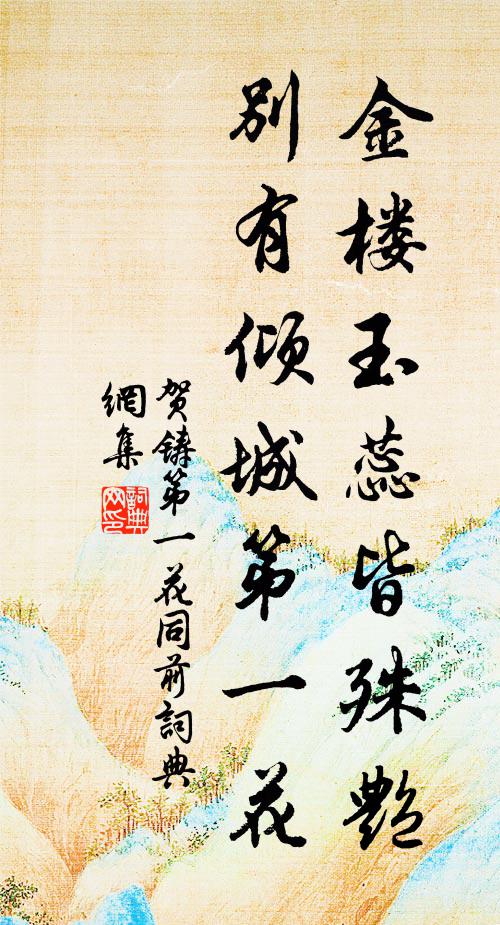 金楼玉蕊皆殊艶
别有倾城第一花
贺铸第一花同前詞典
網集
詞典
网印